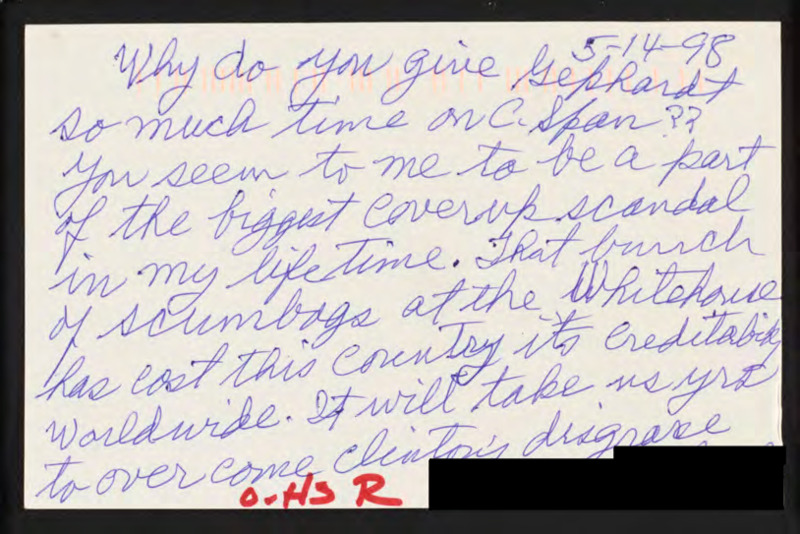 5-14-98
Why do you give Gephardt
so much time on C. Span ??
You seem to me to be a part
of the biggest coverup scandal
in my lifetime. That bunch
of scumbags at the Whitehouse
has cost this country its creditabity
worldwide. It will take us yrs
to over come Clinton's disgrase
O-HS R